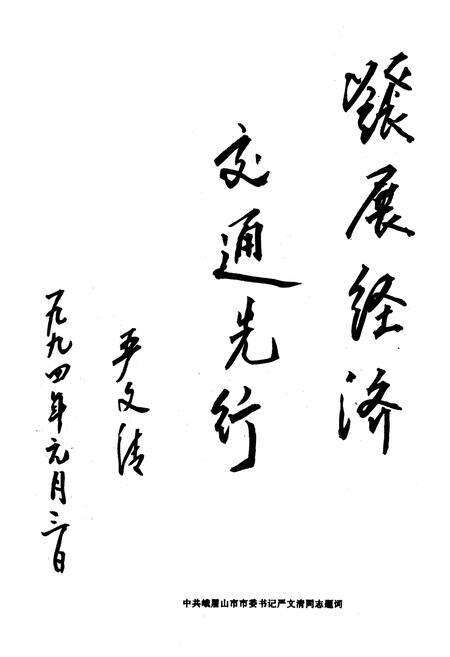 發展经济
交通先行
严文清
一九九四年元月三日
中共峨眉山市市委书记严文清同志题词